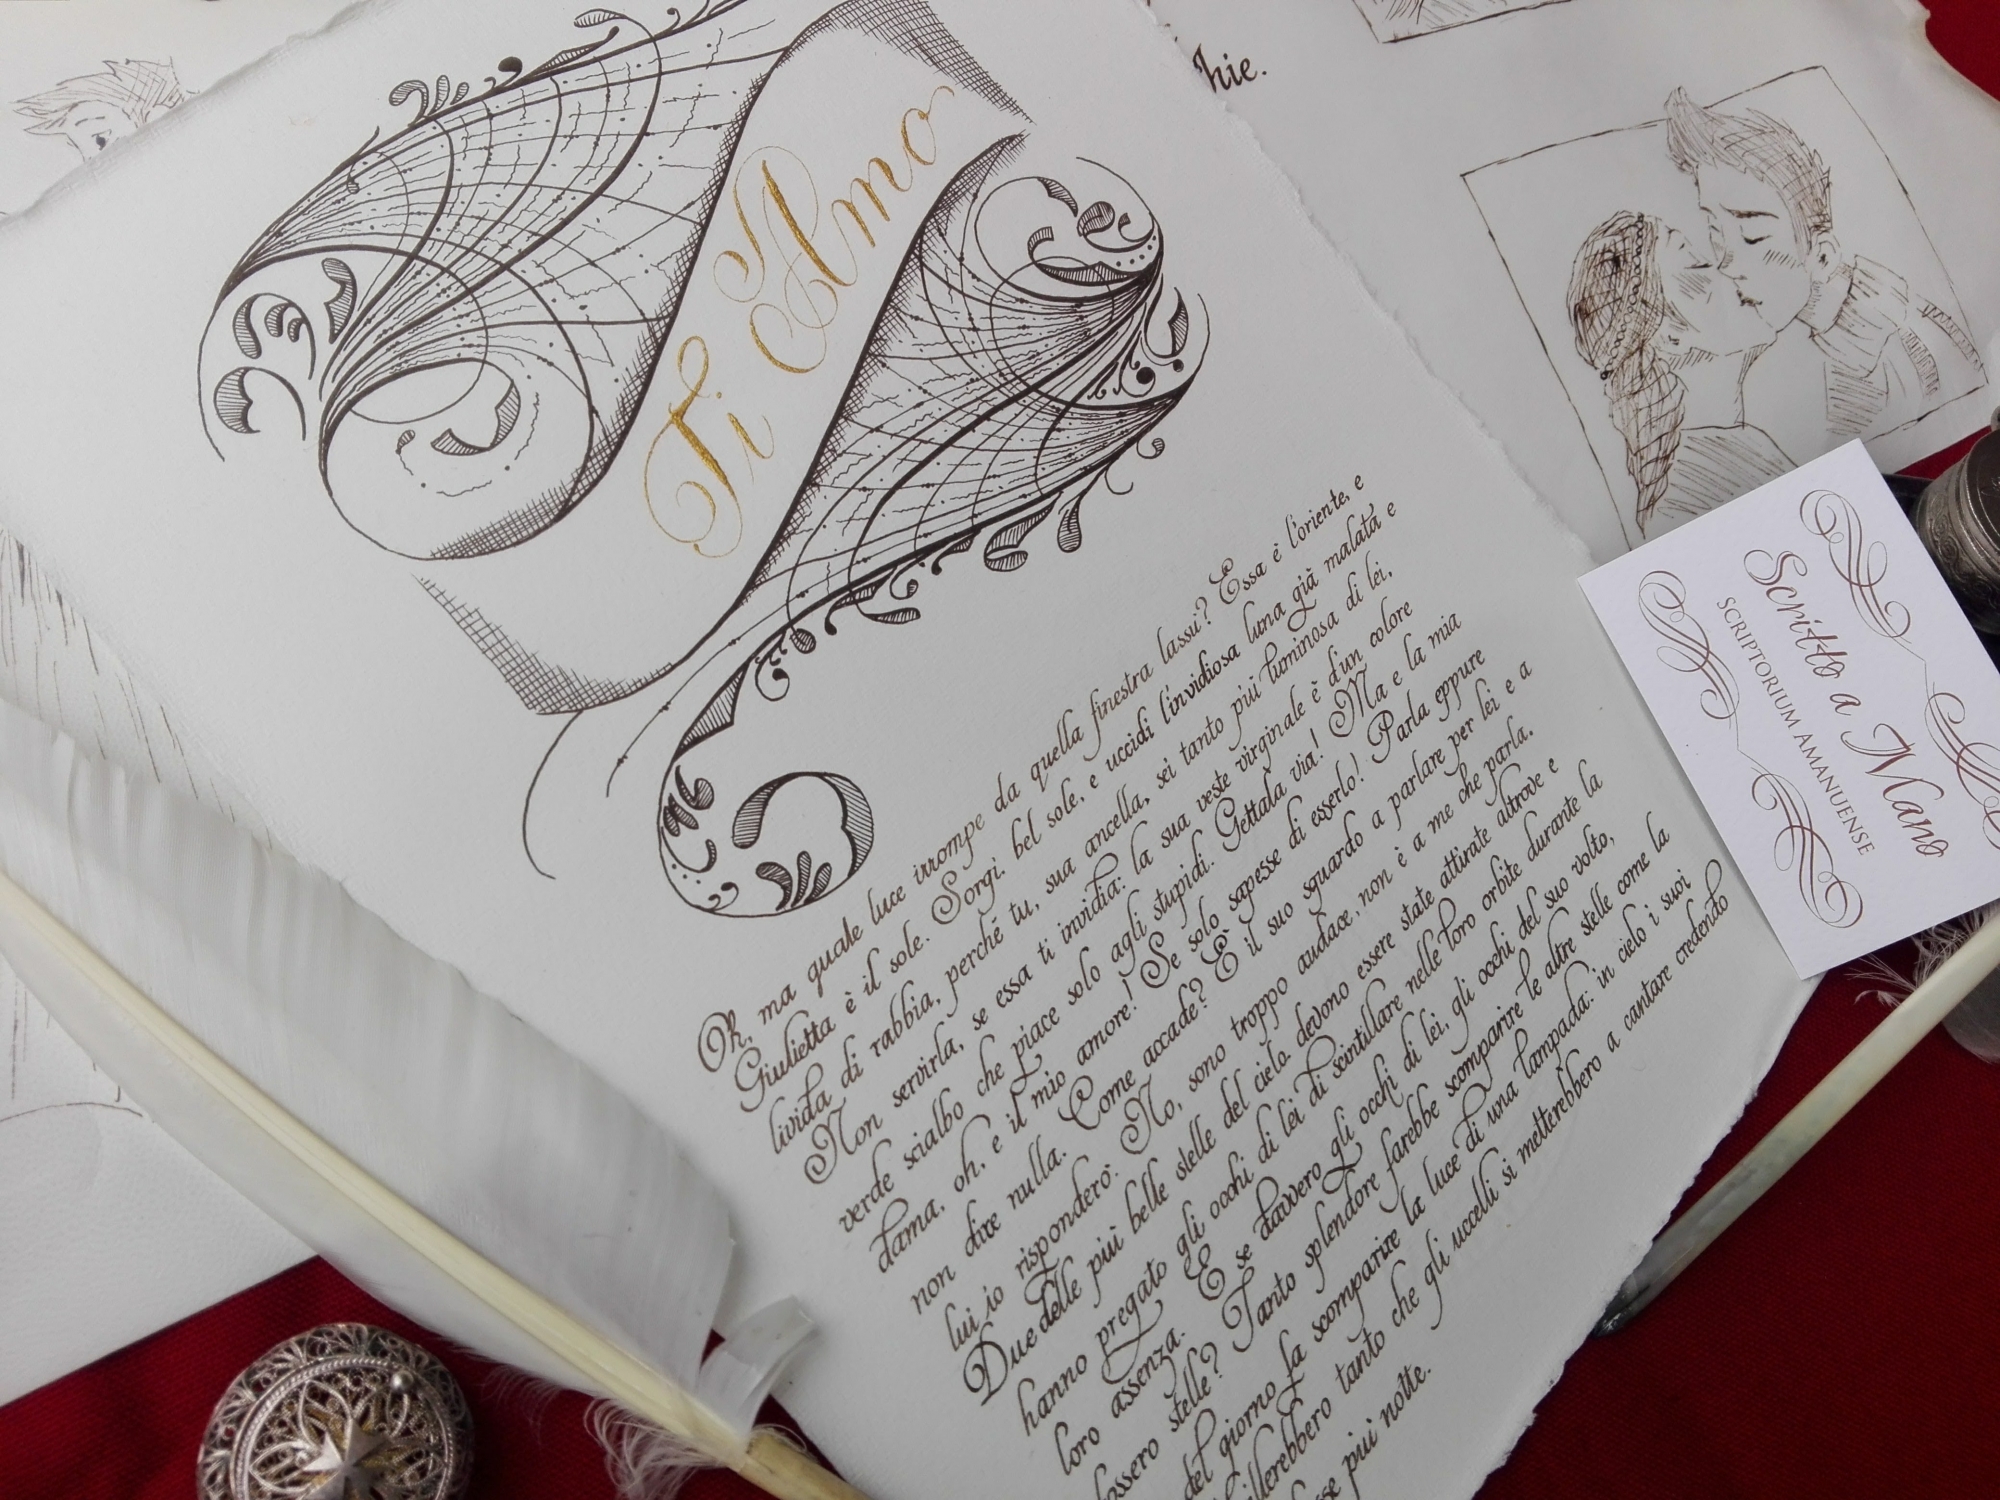 hie.
Ti Amo
Oh, ma quale luce irrompe da quella finestra lassù? Essa è l'oriente, e
Giulietta è il sole. Sorgi, bel sole, e uccidi l'invidiosa luna già malata e
livida di rabbia, perché tu, sua ancella, sei tanto più luminosa di lei.
Non servirla, se essa ti invidia: la sua veste virginale è d'un colore
verde scialbo che piace solo agli stupidi. Gettala via! Ma e la mia
dama, oh, e il mio amore! Se solo sapesse di esserlo! Parla eppure
non dire nulla. Come accade? È il suo sguardo a parlare per lei e a
lui io risponderò: No, sono troppo audace, non è a me che parla.
Due delle più belle stelle del cielo devono essere state attirate altrove e
hanno pregato gli occhi di lei di scintillare nelle loro orbite durante la
loro assenza. E se davvero gli occhi di lei, gli occhi del suo volto,
fossero stelle? Tanto splendore farebbe scomparire le altre stelle come la
del giorno fa scomparire la luce di una lampada: in cielo i suoi
illerebbero tanto che gli uccelli si metterebbero a cantare credendo
sse più notte.
Scritto a Mano
SCRIPTORIUM AMANUENSE